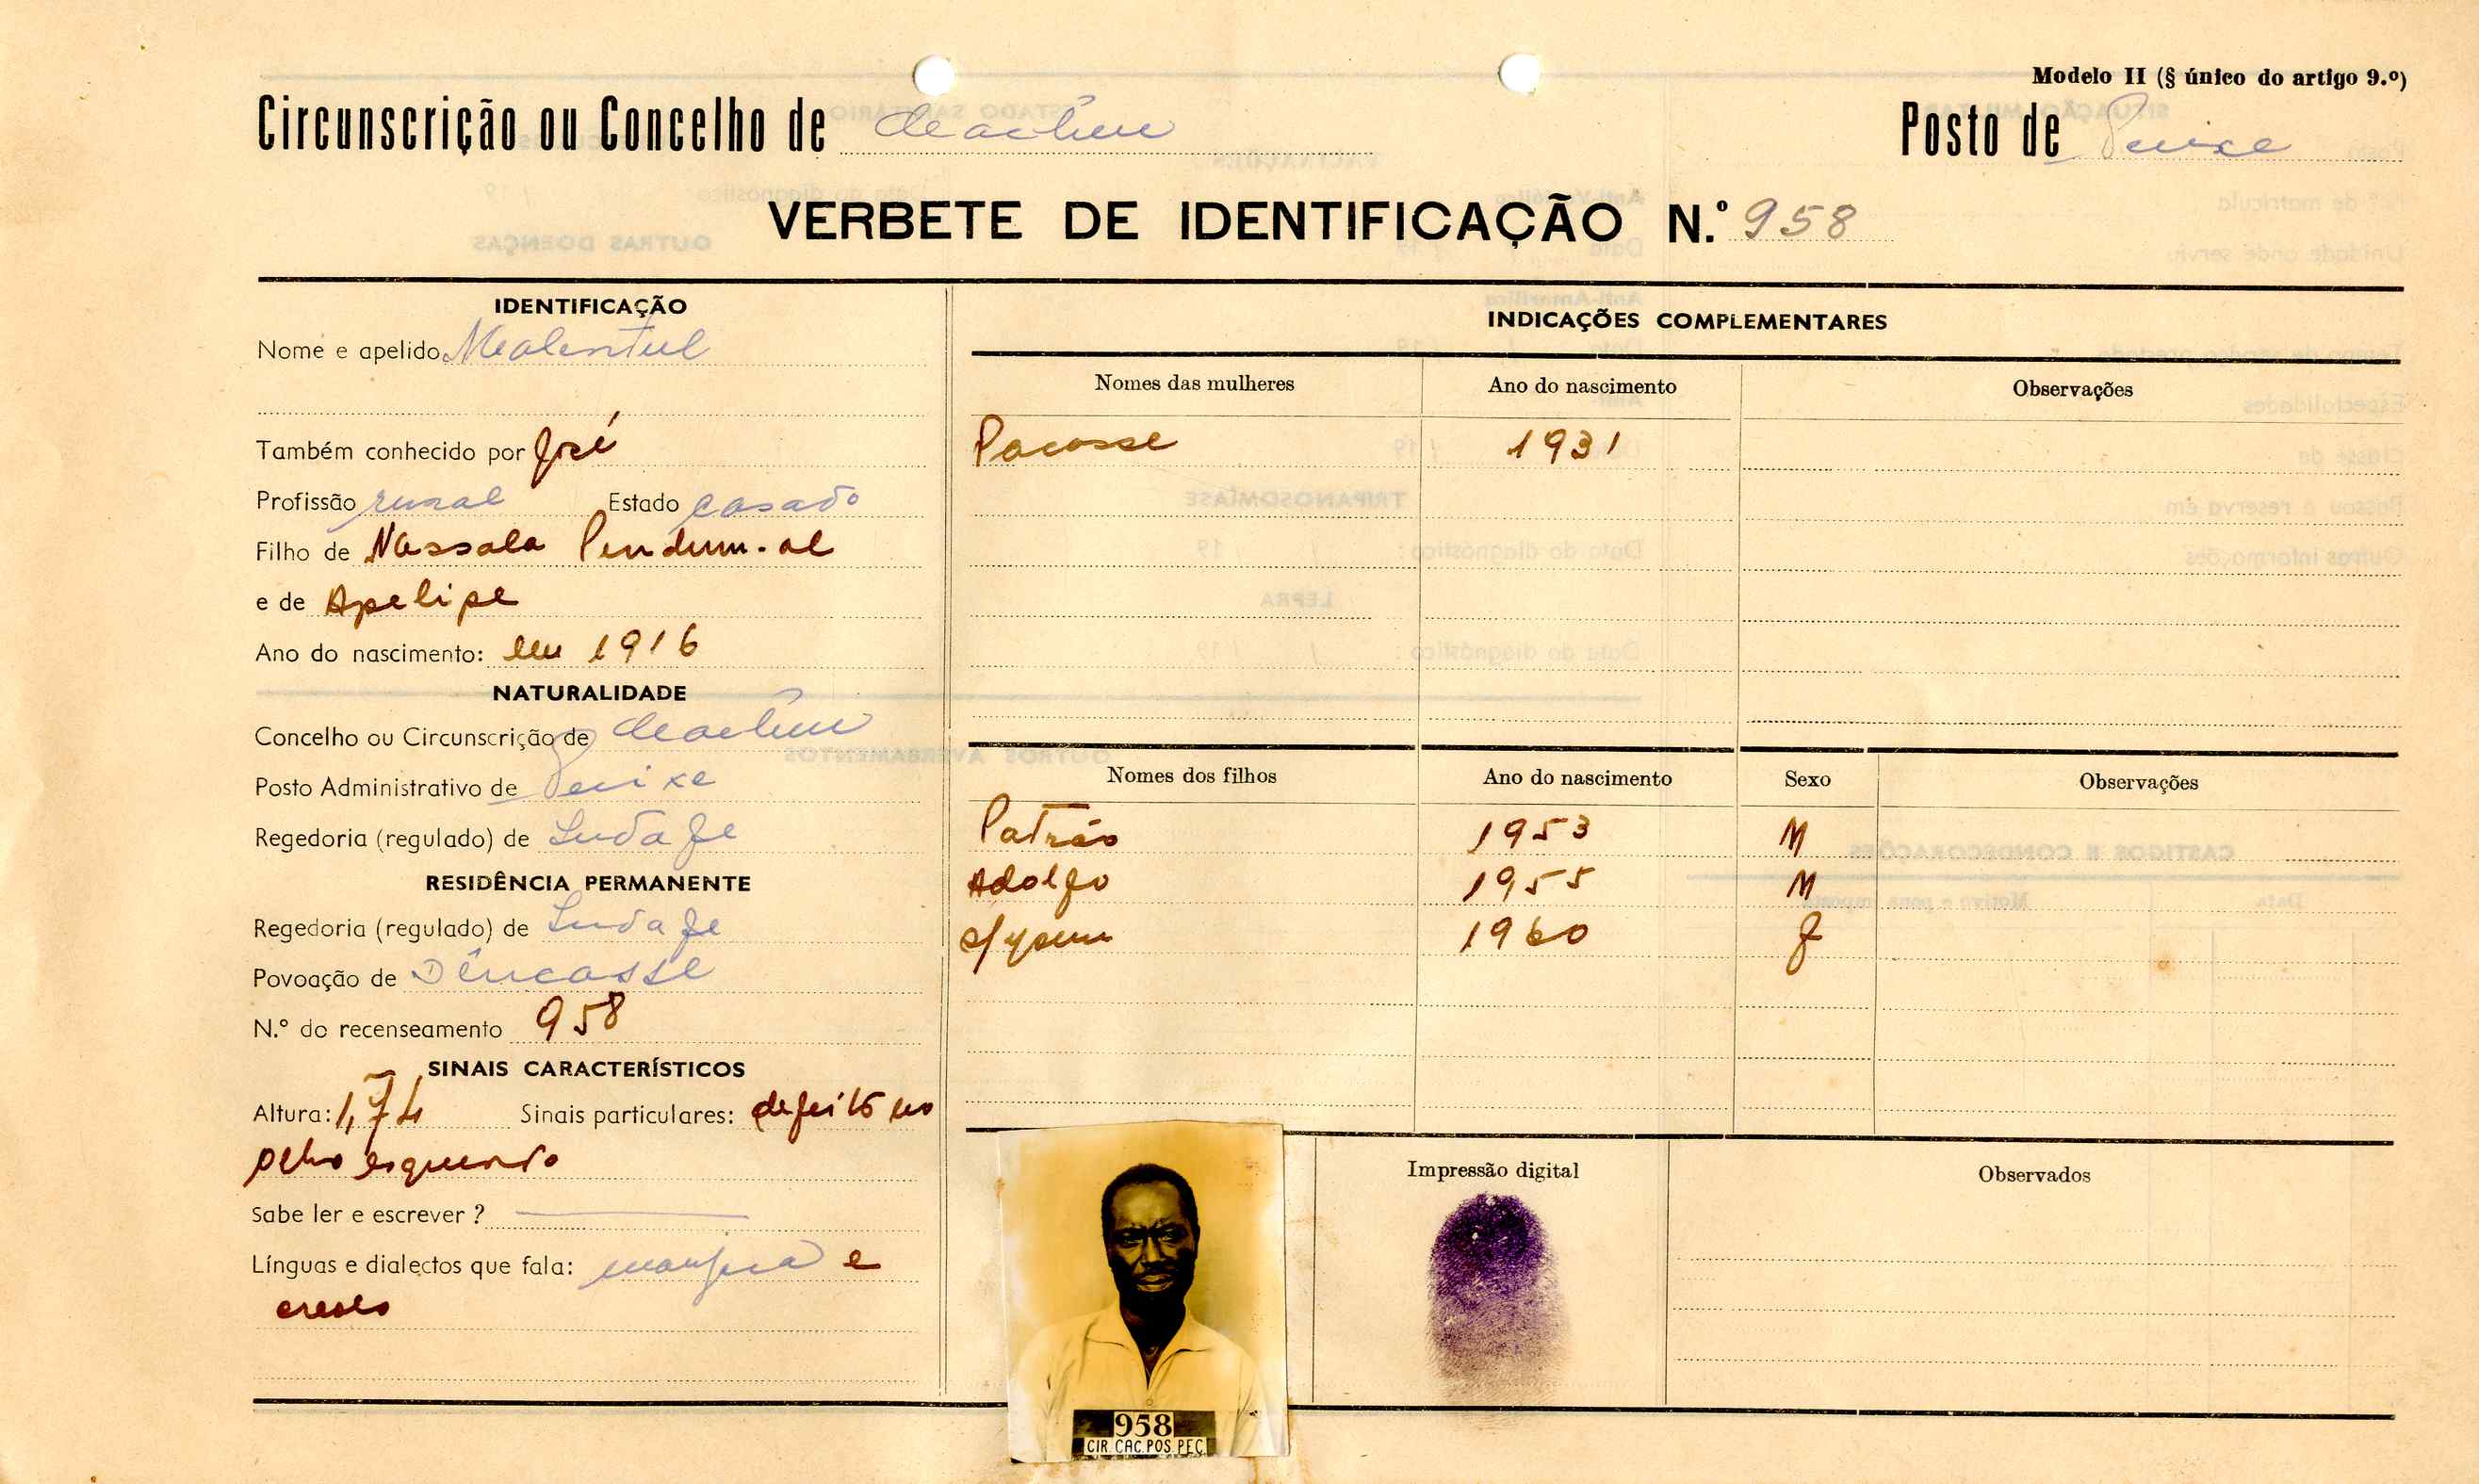 Modelo II (§ único do artigo 9.º)
Circunscrição ou Concelho de Cacheu Posto de Pecixe
VERBETE DE IDENTIFICAÇÃO N.º 958
IDENTIFICAÇÃO
Nome e apelido
Também conhecido por José
Profissão rural Estado casado
Filho de Nassala
e de Apelipe
Ano do nascimento: em 1916
NATURALIDADE
Concelho ou Circunscrição de Cacheu
Posto Administrativo de Pecixe
Regedoria (regulado) de
RESIDÊNCIA PERMANENTE
Regedoria (regulado) de
Povoação de
N.º do recenseamento 958
SINAIS CARACTERÍSTICOS
Altura: 1,74 Sinais particulares: defeito no
olho esquerdo
Sabe ler e escrever ?
Línguas e dialectos que fala: manjaca e
creolo
INDICAÇÕES COMPLEMENTARES
Nomes das mulheres Ano do nascimento Observações
Pacasse 1931
Nomes dos filhos Ano do nascimento Sexo Observações
Patrão 1953 M
Adolfo 1955 M
1960 F
Impressão digital Observados
958
CIR. CAC. POS. PEC.